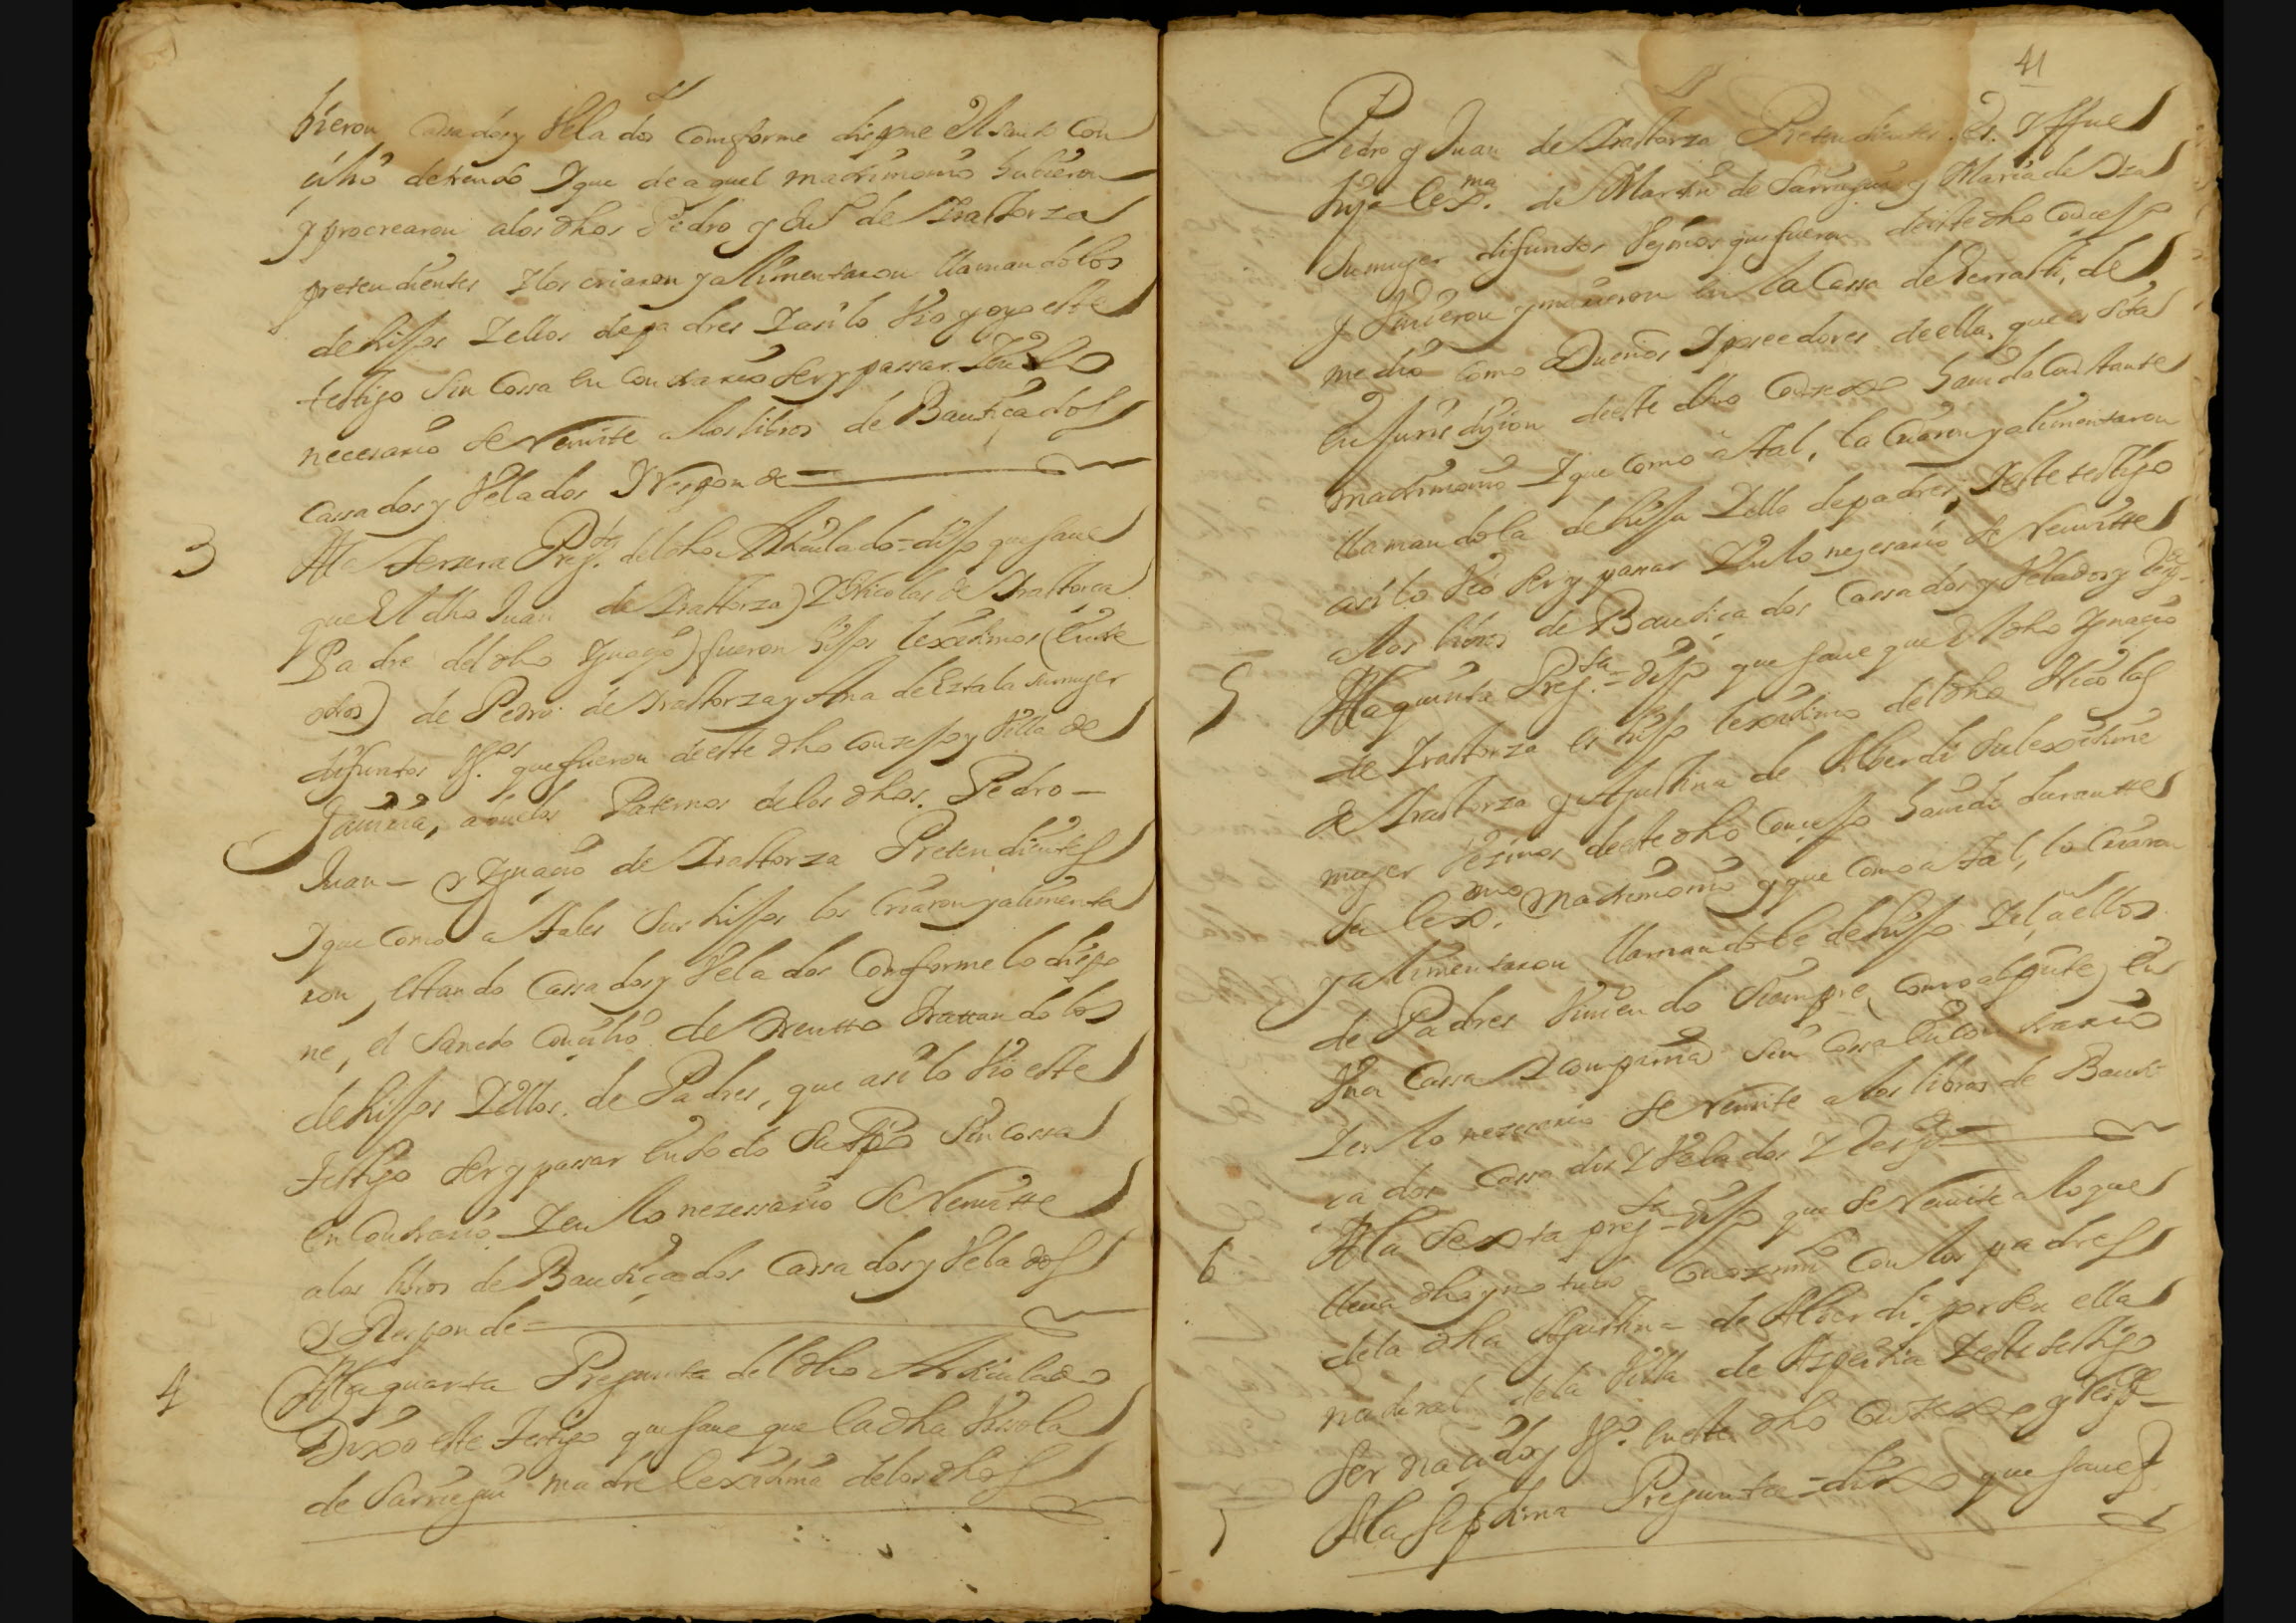 hieron Cassados y Velados comforme dispone el santo Con
cilio de trento Y que de aquel matrimonio hubieron
y procrearon a los dhos Pedro y Juº de Yraltorza
pretendientes Y los criaron y allimentaron llamandolos
de hijos Y ellos de padres Y assi lo vio y oyo este
testigo sin Cossa en Contrario ser y passar Y en lo
necesario se remite a los libros de Bautiçados
Cassados y Velados Y Responde
3
A la terzera Pregta. del dho Articulado = dijo que save
que El dho Juan de Yraltorza) Y Nicolas de Yraltorça
Padre del dho Ygnaçio) fueron hijos lexitimos (entre
otros) de Pedro de Yraltorza y Ana de Eztala su muger
difuntos Vos. que fueron de este dho conzejo y Villa de
abuelos Paternos de los dhos. Pedro –
Juan – y Ygnacio de Yraltorza Pretendientes
Y que como a tales sus hijos los Criaron y alimenta
ron, estando Cassados y Velados Conforme lo dispo
ne, el Sancto Concilio de Trentto trattandolos
de hijos Y ellos de Padres, que asi lo vio este
testigo ser y passar en todo su tpo sin cossa
en Contrario Y en lo nezessario se Remitte
a los libros de Bautiçados Cassados y Velados
y Responde =
4
A la quarta Pregunta del dho Articulado
Dixo este testigo que save que la dha
de Sarrugui madre lexitima de los dhos
41
Pedro y Juan de Yraltorza Pretendientes. es. Y ffue
hija lexma. de Martin de Sarrugui y Maria de
su muger difuntos Vezinos que fueron de este dho Concejo
y vivieron y murieron en la Cassa de de
medio como Dueños Y poseedores de ella, que es sita
en Jurisdiçion de este dho Conzexo havida Constante
matrimonio Y que como a tal, la Criaron y alimentaron
llamandola de hija Y ella de padres, Y este testigo
asi lo vio ser y passar Y en lo neçesario se Remitte
a los libros de Bautiçados Cassados y Velados y
5
A la quinta Pregta. = dijo que save que El dho Ygnaçio
de Yraltorza es hijo lexitimo del dho Nicolas
de Yraltorza y Agustina de Alberdi su lexitima
muger Vezinos de este dho Concejo havido durantte
su lexmo. Matrimonio y que como a tal, lo Criaron
y allimentaron llamandole de hijo Y el, a ellos
de Padres Viviendo siempre, como al presste, en
Una Cassa Y compania sin Cossa en contrario
Y en lo nezesario se remite a los libros de Bauti
çados Cassados Y Velados Y
6
A la Sexta pregta = dijo que se Remite a lo que
lleva dho y no tubo Conozimto con los padres
de la dha Agustina de Alberdi, por ser ella
natural de la Villa de Azpeitia Y este testigo
ser naçido y Vo. en este dho Conzexo y
7
A la septima Pregunta = dixo que save